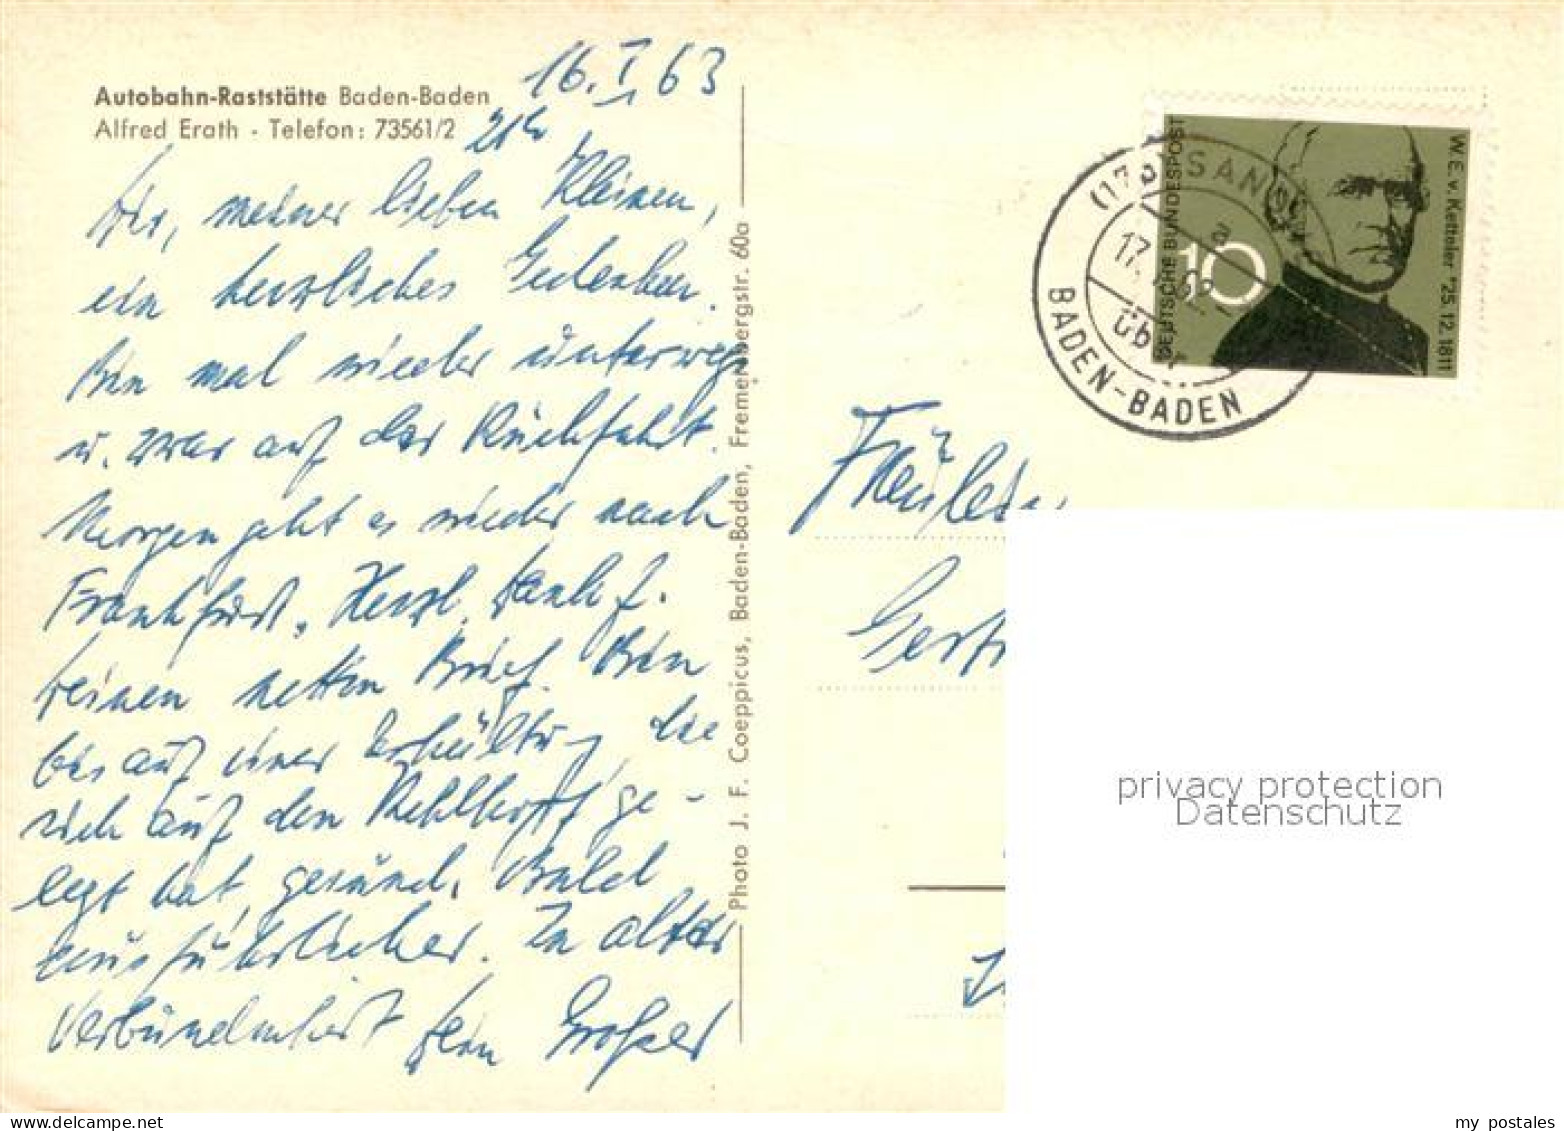 Autobahn-Raststätte Baden-Baden
Alfred Erath - Telefon: 73561/2
16. I. 63
21h
Dir, meiner lieben Kleinen,
ein herzliches Gedenken.
Bin mal wieder unterwegs
u. zwar auf der Rückfahrt.
Morgen geht es wieder nach
Frankfurt. Herzl. Dank f.
Deinen netten Brief. Bin
bis auf einer Erkältung, die
sich auf den Kehlkopf ge-
legt hat, gesund. Bald
ausführlicher. In alter
Verbundenheit Dein Großer
Photo J. F. Coeppicus, Baden-Baden, Fremersbergstr. 60a
DEUTSCHE BUNDESPOST
10
W. E. v. Ketteler *25.12.1811
SAND
a
17.
über
BADEN-BADEN
Fräulein
privacy protection
Datenschutz
my postales